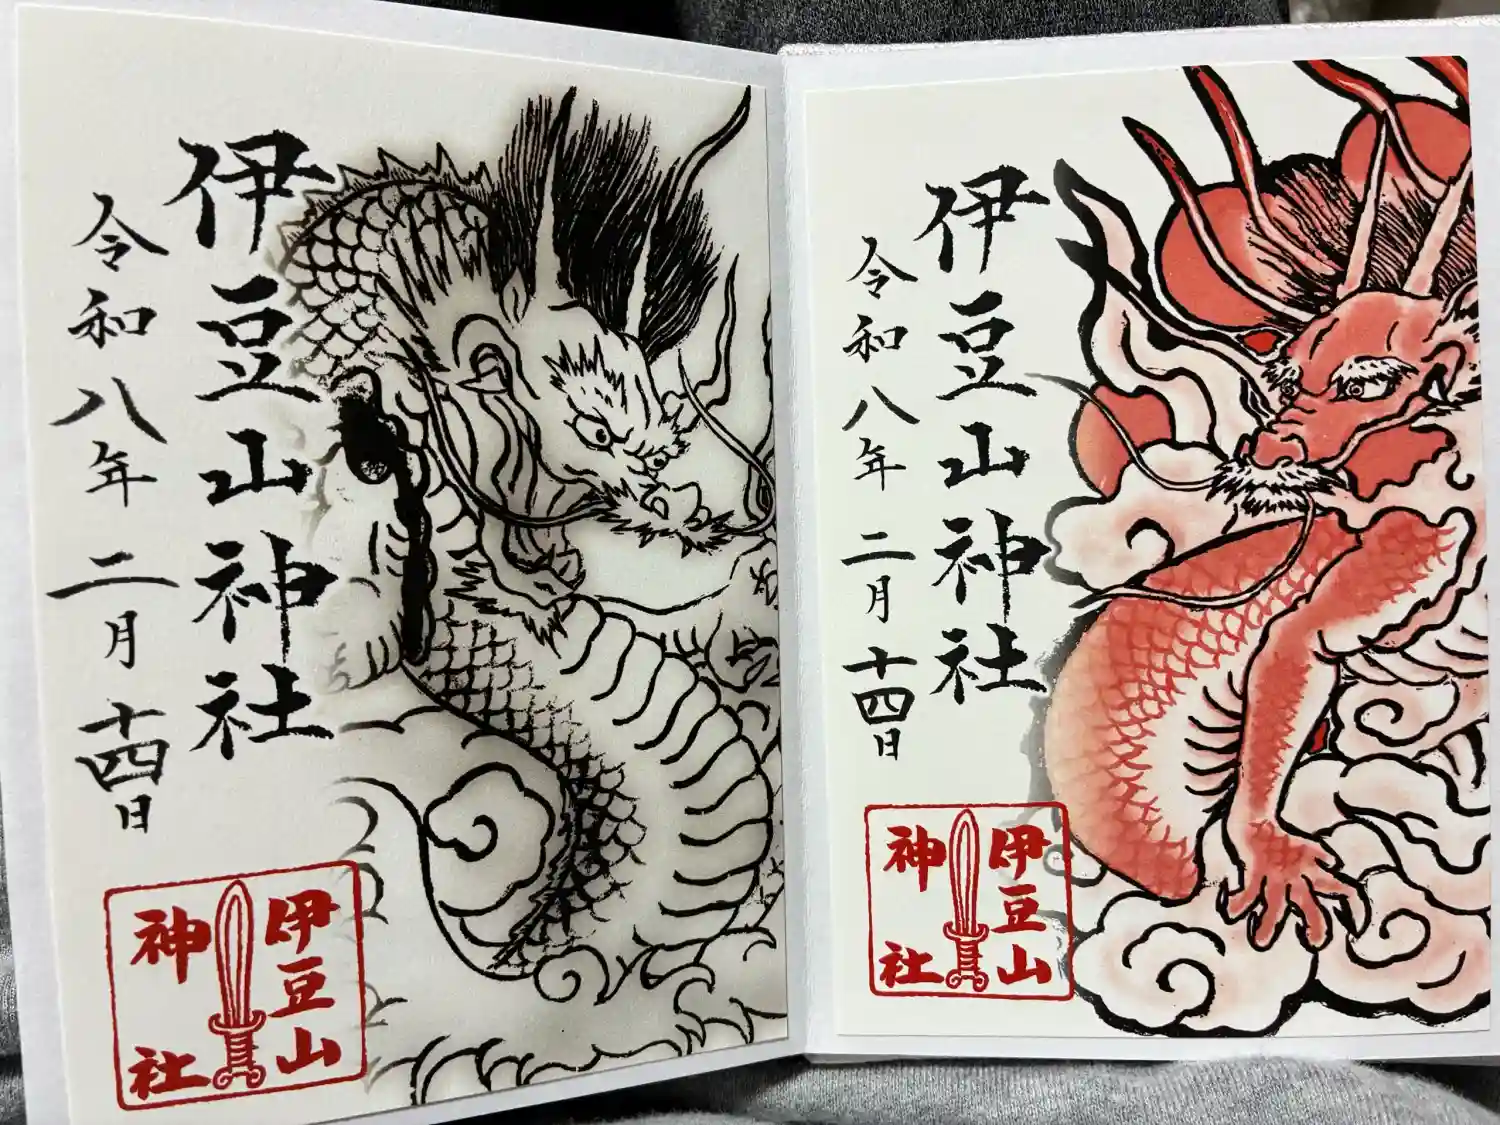 伊豆山神社
令和八年 二月十四日
伊豆山
神社
伊豆山神社
令和八年 二月十四日
伊豆山
神社